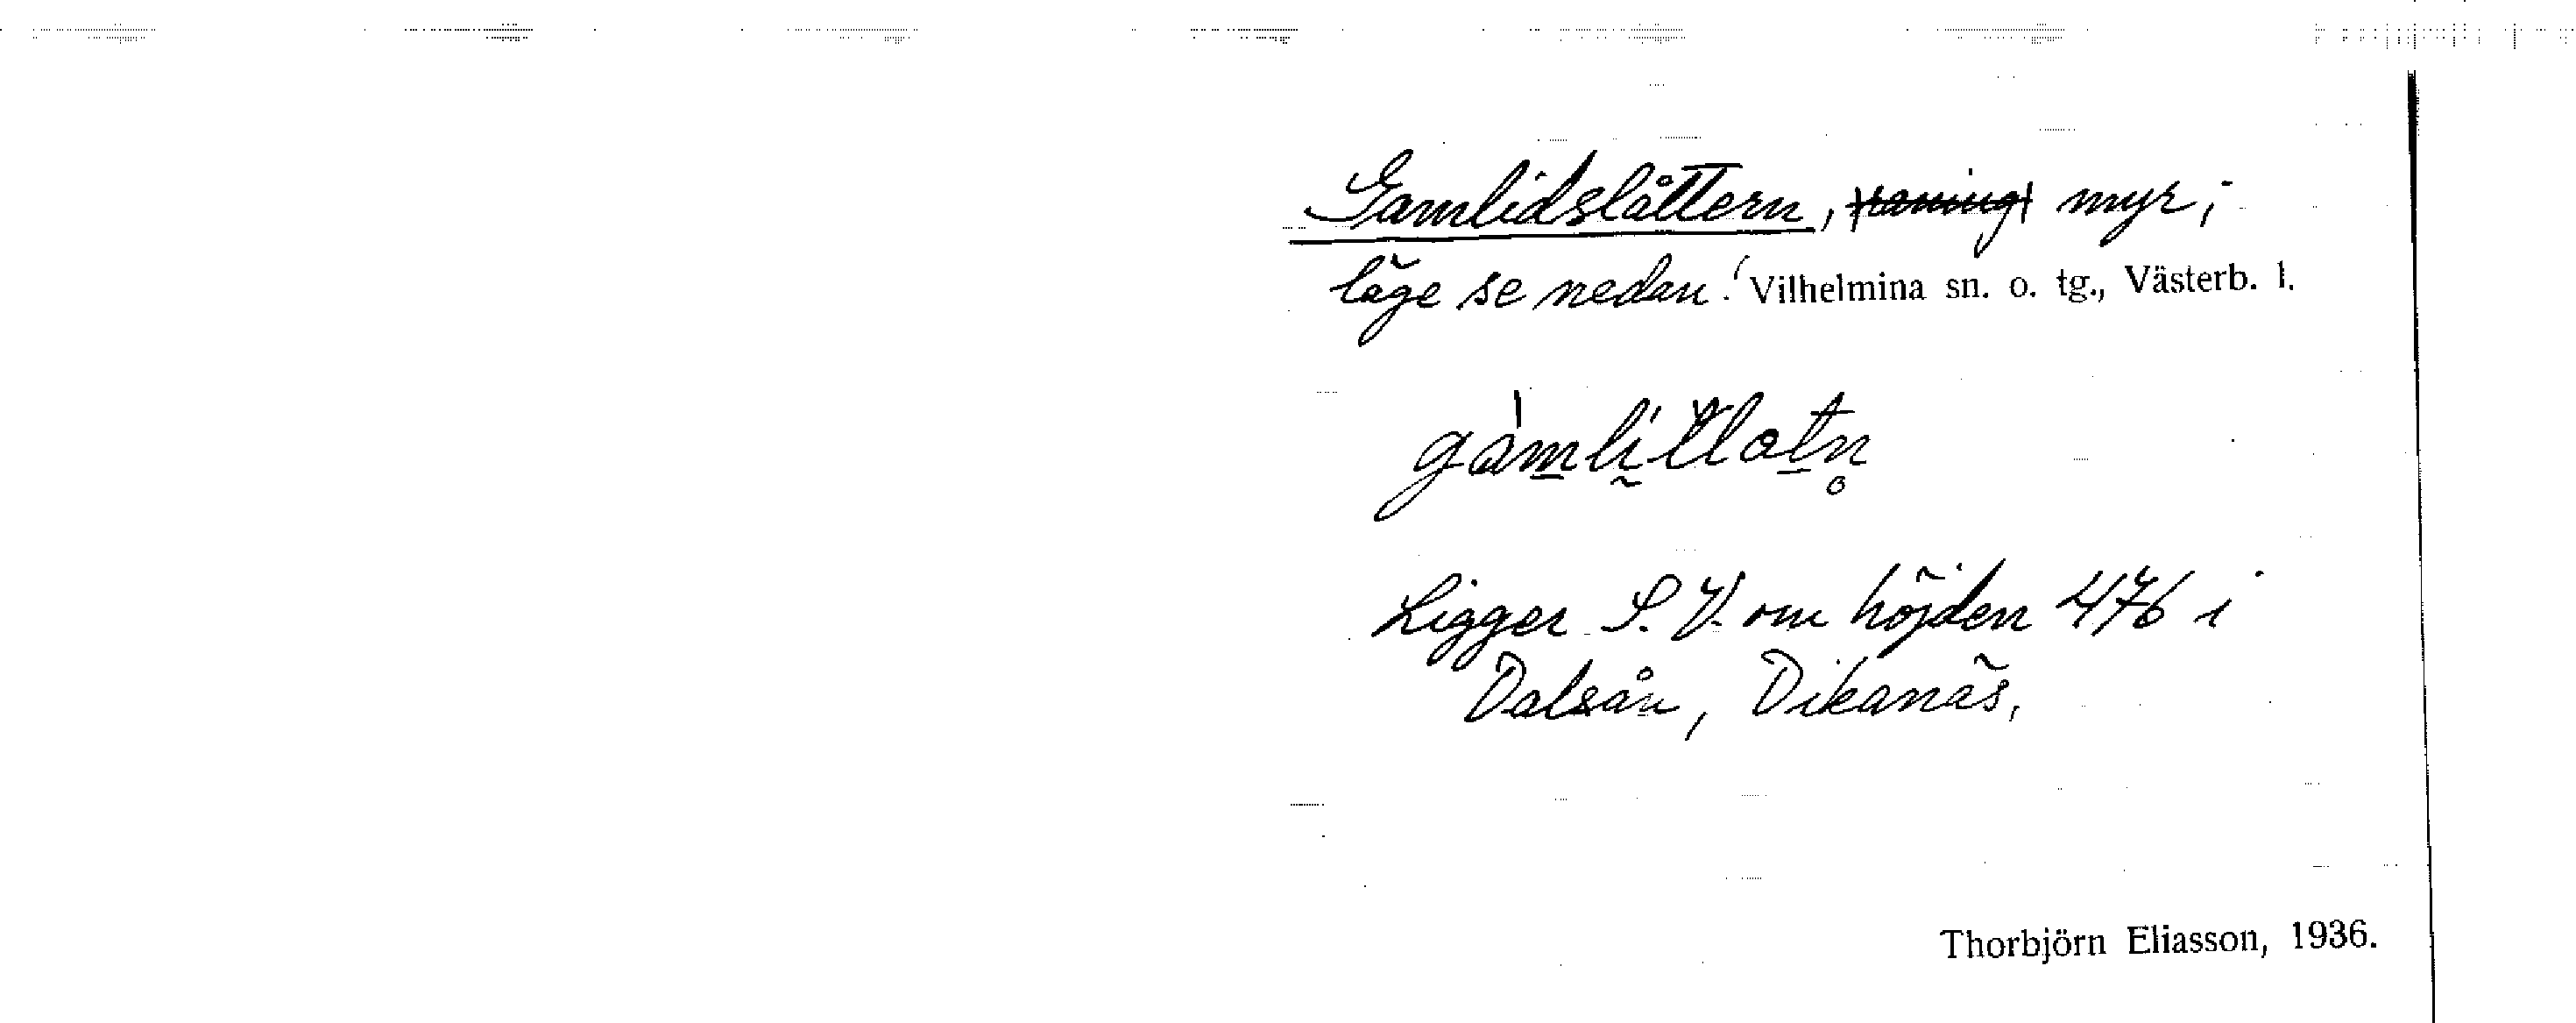 Gamlidslåttern, raning myr;
läge se nedan. Vilhelmina sn. o. tg., Västerb. l.
gàmlḭtlotn̥
Ligger S.V. om höjden 476 i
Dalsån, Dikanäs.
Thorbjörn Eliasson, 1936.